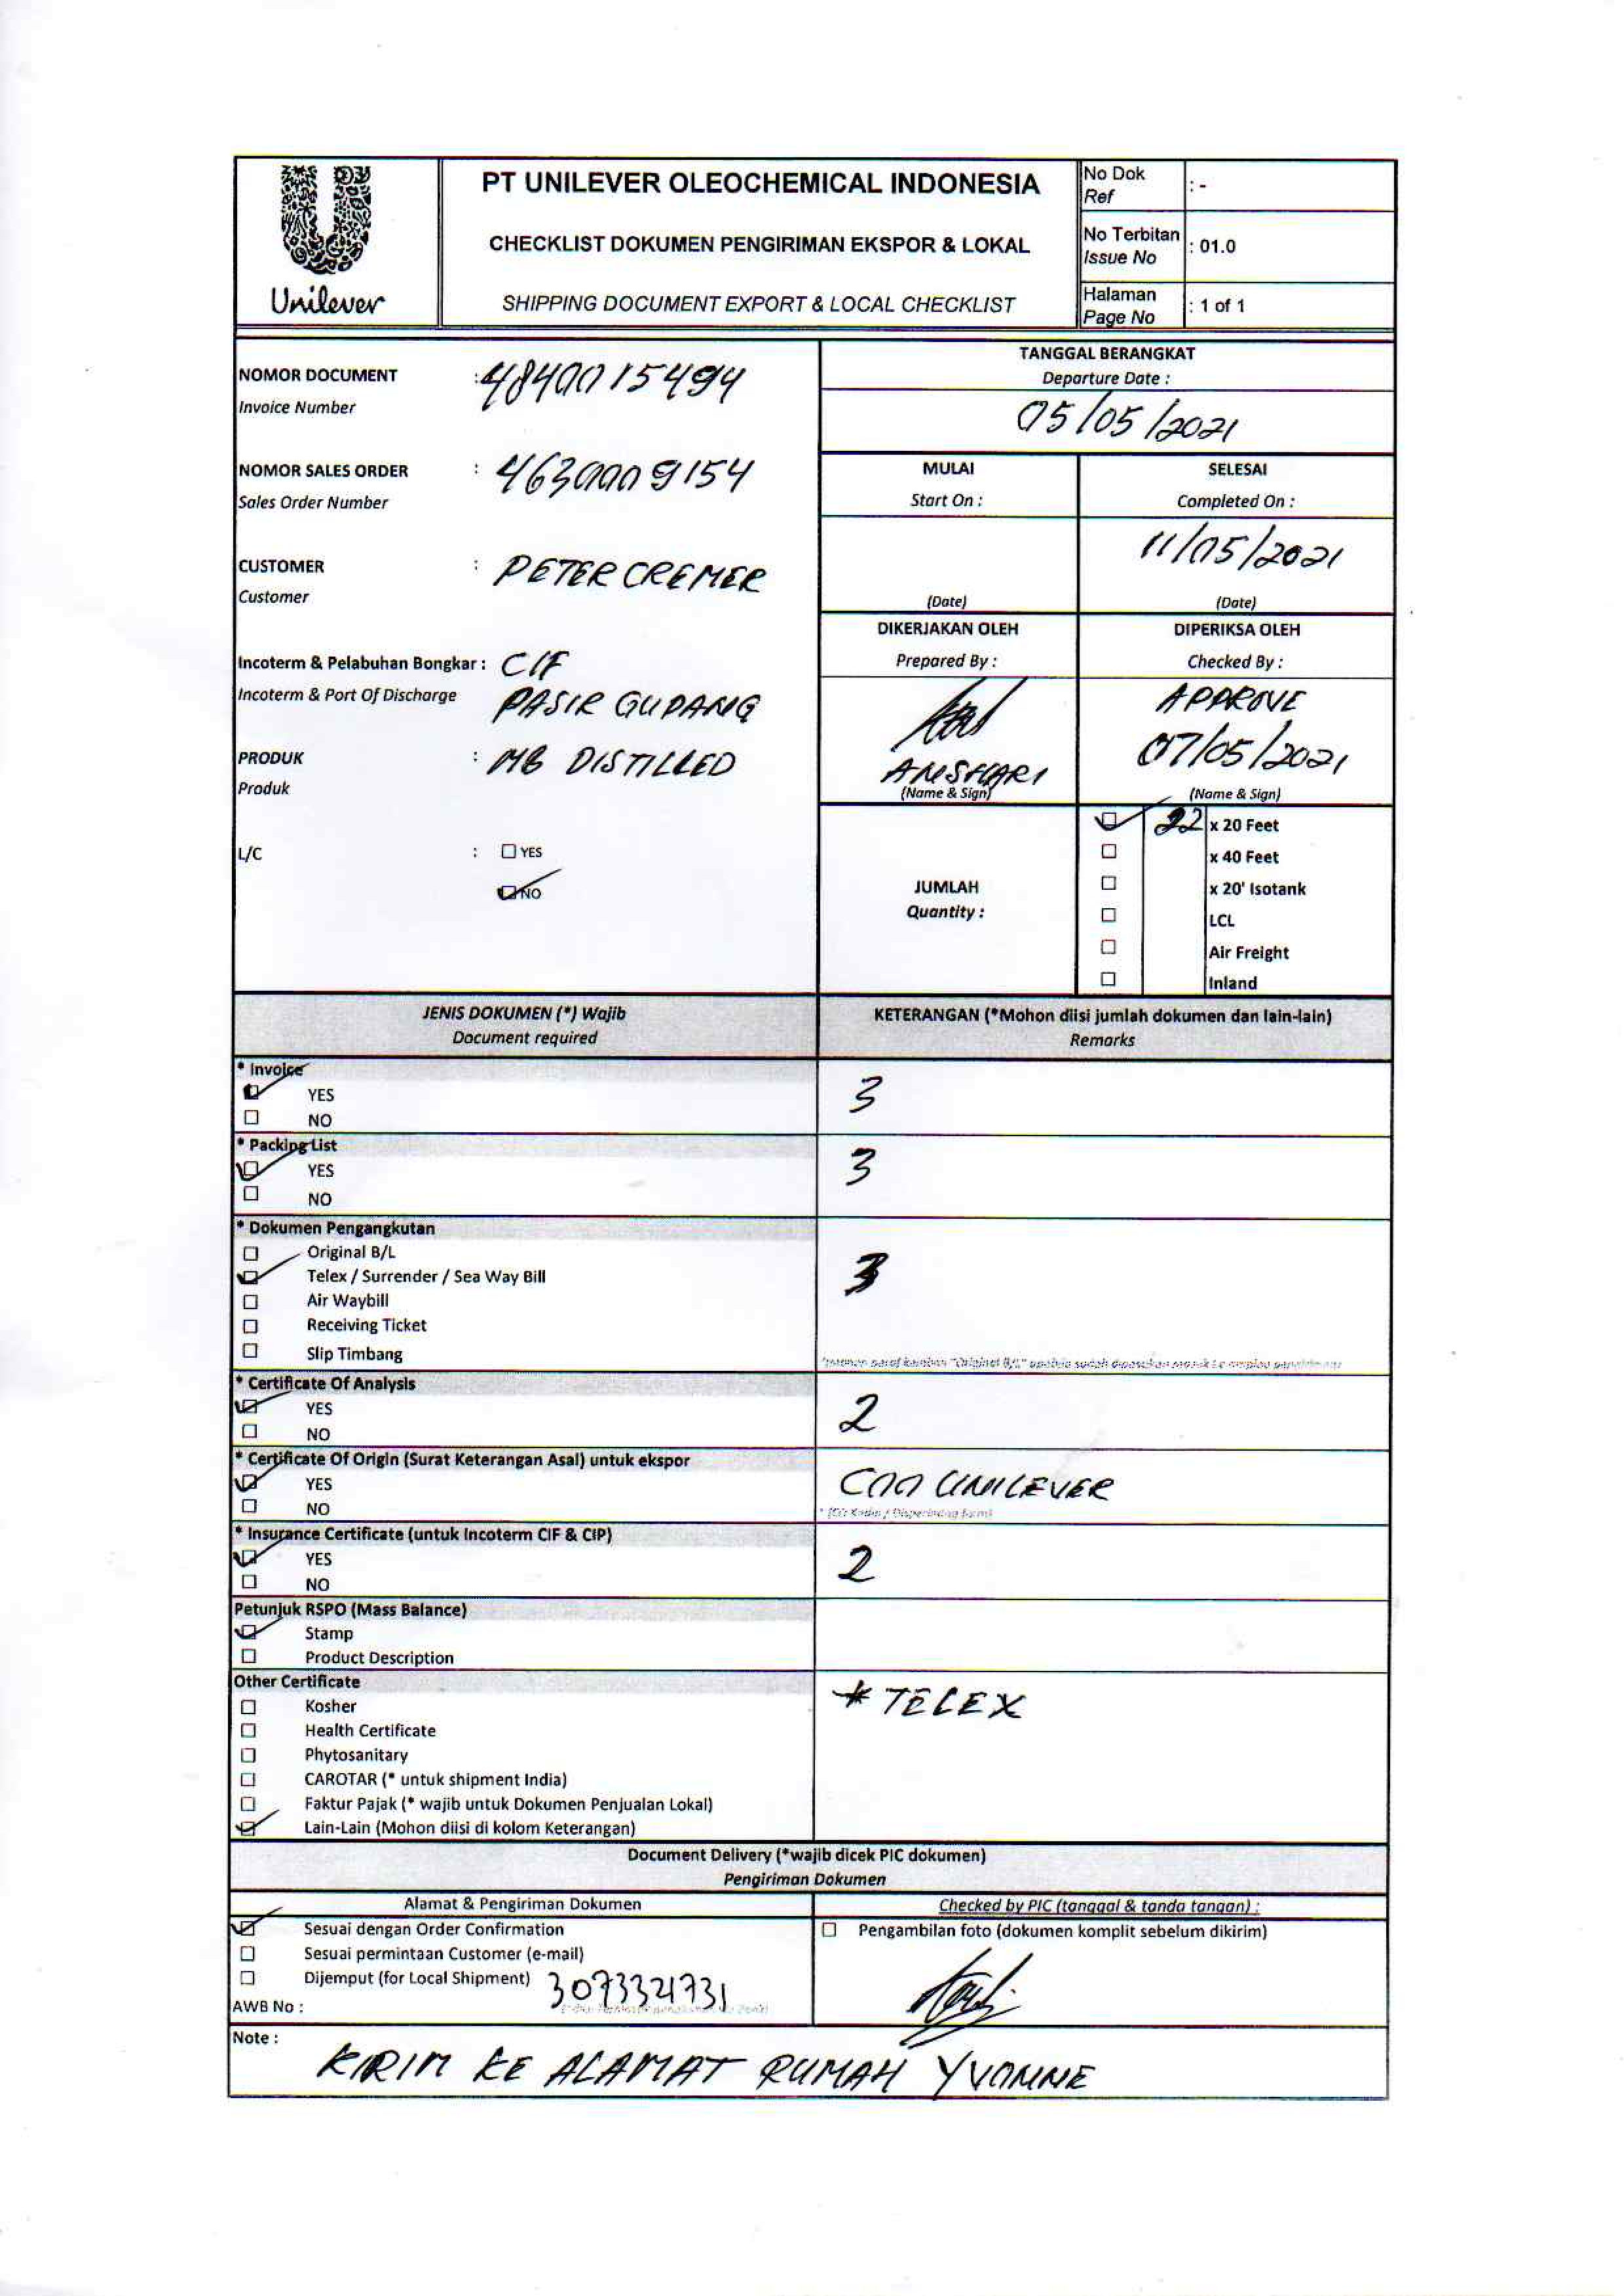 PT UNILEVER OLEOCHEMICAL INDONESIA
CHECKLIST DOKUMEN PENGIRIMAN EKSPOR & LOKAL
SHIPPING DOCUMENT EXPORT & LOCAL CHECKLIST
Unilever
No Dok
Ref : -
No Terbitan
Issue No : 01.0
Halaman
Page No : 1 of 1
NOMOR DOCUMENT : 4840015494
Invoice Number
NOMOR SALES ORDER : 4630009154
Sales Order Number
CUSTOMER : PETER CREMER
Customer
Incoterm & Pelabuhan Bongkar : CIF
Incoterm & Port Of Discharge PASIR GUDANG
PRODUK : MB DISTILLED
Produk
L/C : YES
NO
TANGGAL BERANGKAT
Departure Date :
05/05/2021
MULAI
Start On :
(Date)
SELESAI
Completed On :
11/05/2021
(Date)
DIKERJAKAN OLEH
Prepared By :
ANSHARI
(Name & Sign)
DIPERIKSA OLEH
Checked By :
APPROVE
07/05/2021
(Name & Sign)
JUMLAH
Quantity :
22 x 20 Feet
x 40 Feet
x 20' Isotank
LCL
Air Freight
Inland
JENIS DOKUMEN (*) Wajib
Document required
KETERANGAN (*Mohon diisi jumlah dokumen dan lain-lain)
Remarks
* Invoice
YES
NO
3
* Packing List
YES
NO
3
* Dokumen Pengangkutan
Original B/L
Telex / Surrender / Sea Way Bill
Air Waybill
Receiving Ticket
Slip Timbang
3
* Certificate Of Analysis
YES
NO
2
* Certificate Of Origin (Surat Keterangan Asal) untuk ekspor
YES
NO
COO UNILEVER
* Insurance Certificate (untuk Incoterm CIF & CIP)
YES
NO
2
Petunjuk RSPO (Mass Balance)
Stamp
Product Description
Other Certificate
Kosher
Health Certificate
Phytosanitary
CAROTAR (* untuk shipment India)
Faktur Pajak (* wajib untuk Dokumen Penjualan Lokal)
Lain-Lain (Mohon diisi di kolom Keterangan)
* TELEX
Document Delivery (*wajib dicek PIC dokumen)
Pengiriman Dokumen
Alamat & Pengiriman Dokumen
Sesuai dengan Order Confirmation
Sesuai permintaan Customer (e-mail)
Dijemput (for Local Shipment)
AWB No : 3073321731
Checked by PIC (tanggal & tanda tangan) :
Pengambilan foto (dokumen komplit sebelum dikirim)
Note :
KIRIM KE ALAMAT RUMAH YVONNE